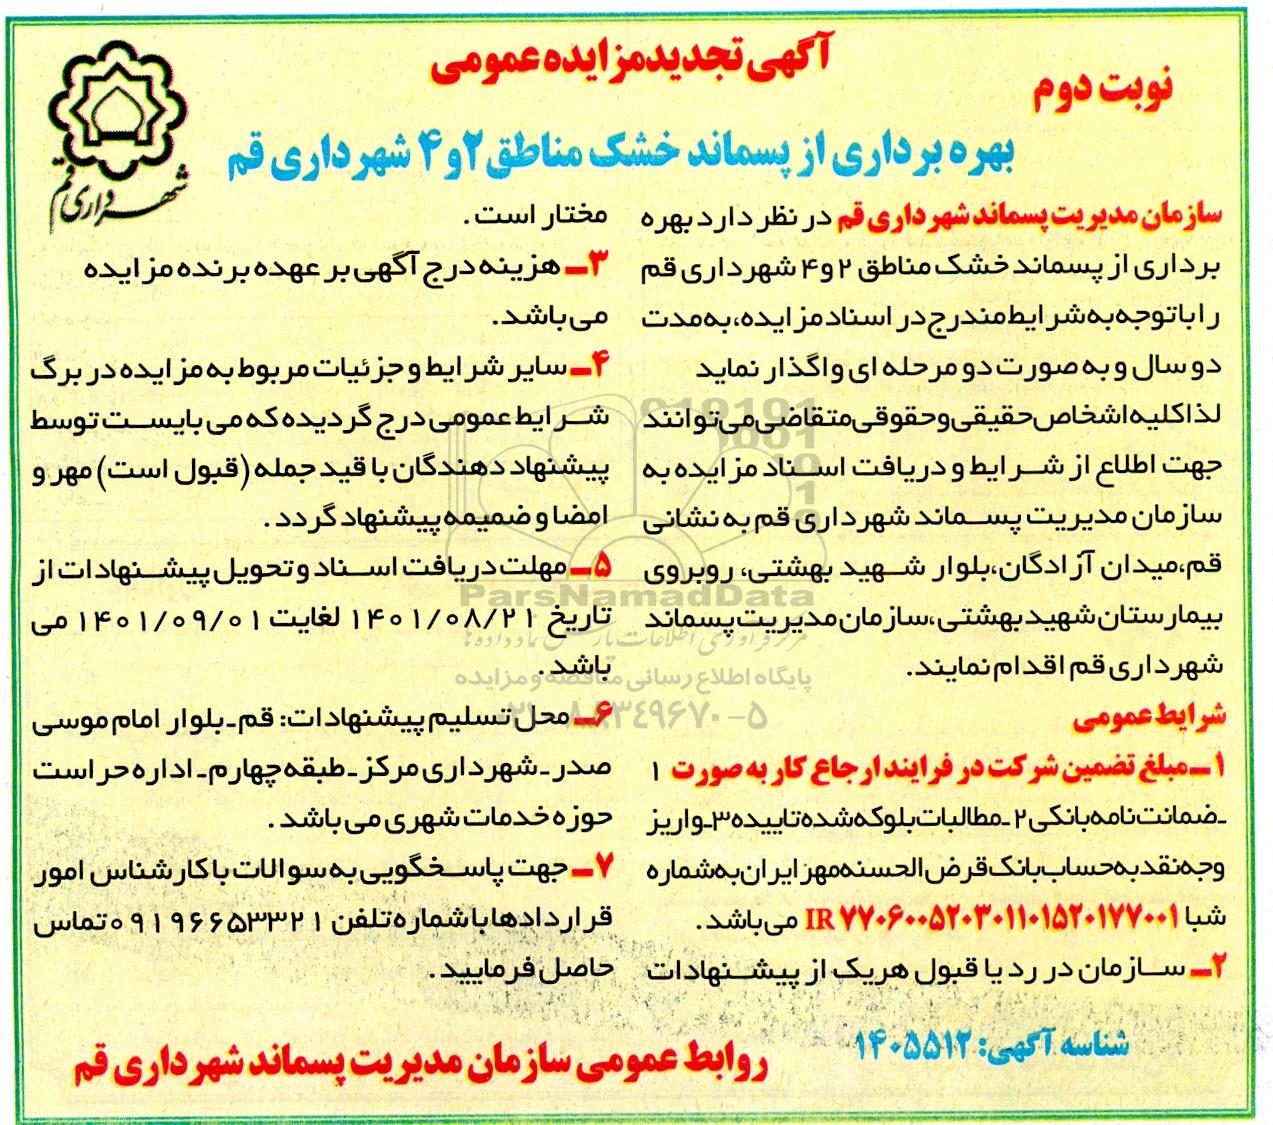 آگهی تجدید مزایده عمومی
نوبت دوم
بهره برداری از پسماند خشک مناطق ۲ و ۴ شهرداری قم
شهرداری قم
سازمان مدیریت پسماند شهرداری قم در نظر دارد بهره
برداری از پسماند خشک مناطق ۲ و ۴ شهرداری قم
را با توجه به شرایط مندرج در اسناد مزایده، به مدت
دو سال و به صورت دو مرحله ای واگذار نماید
لذا کلیه اشخاص حقیقی و حقوقی متقاضی می توانند
جهت اطلاع از شرایط و دریافت اسناد مزایده به
سازمان مدیریت پسماند شهرداری قم به نشانی
قم، میدان آزادگان، بلوار شهید بهشتی، روبروی
بیمارستان شهید بهشتی، سازمان مدیریت پسماند
شهرداری قم اقدام نمایند.
شرایط عمومی
۱ـ مبلغ تضمین شرکت در فرایند ارجاع کار به صورت ۱
ـ ضمانت نامه بانکی ۲ـ مطالبات بلوکه شده تاییده ۳ـ واریز
وجه نقد به حساب بانک قرض الحسنه مهر ایران به شماره
شبا IR ۷۷۰۶۰۰۵۲۰۳۰۱۱۰۱۵۲۰۱۷۷۰۰۱ می باشد.
۲ـ سازمان در رد یا قبول هریک از پیشنهادات
مختار است.
۳ـ هزینه درج آگهی بر عهده برنده مزایده
می باشد.
۴ـ سایر شرایط و جزئیات مربوط به مزایده در برگ
شرایط عمومی درج گردیده که می بایست توسط
پیشنهاد دهندگان با قید جمله (قبول است) مهر و
امضا و ضمیمه پیشنهاد گردد.
۵ـ مهلت دریافت اسناد و تحویل پیشنهادات از
تاریخ ۱۴۰۱/۰۸/۲۱ لغایت ۱۴۰۱/۰۹/۰۱ می
باشد.
۶ـ محل تسلیم پیشنهادات: قم ـ بلوار امام موسی
صدر ـ شهرداری مرکز ـ طبقه چهارم ـ اداره حراست
حوزه خدمات شهری می باشد.
۷ـ جهت پاسخگویی به سوالات با کارشناس امور
قراردادها با شماره تلفن ۰۹۱۹۶۶۵۳۳۲۱ تماس
حاصل فرمایید.
شناسه آگهی: ۱۴۰۵۵۱۲
روابط عمومی سازمان مدیریت پسماند شهرداری قم
ParsNamadData
پایگاه اطلاع رسانی مناقصه و مزایده